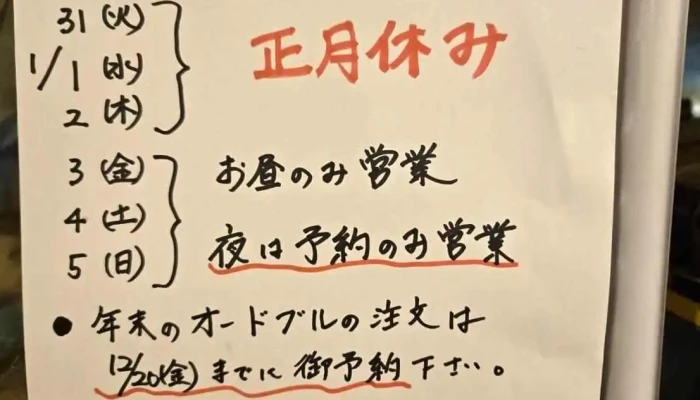 31(火)
1/1(水) 正月休み
2(木)
3(金) お昼のみ営業
4(土)
5(日) 夜は予約のみ営業
● 年末のオードブルの注文は
12/20(金)までに御予約下さい。